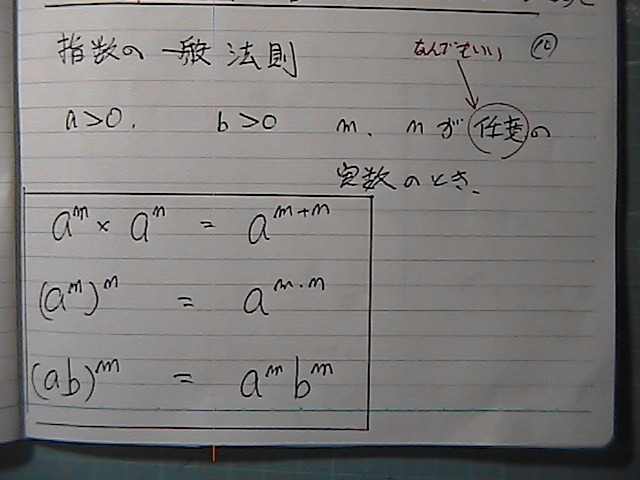 指数の一般法則
なんでもいい
⑫
a>0. b>0 m、nが任意の
実数のとき、
a^m × a^n = a^{m+n}
(a^m)^n = a^{m・n}
(ab)^m = a^m b^m